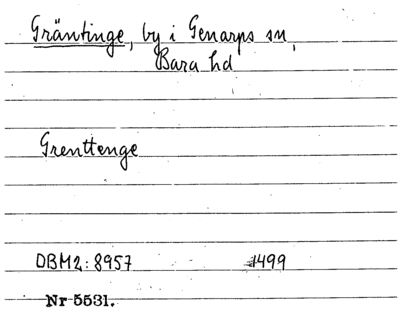 Gräntinge, by i Genarps sn,
Bara hd
Grenttenge
DBM2:8957 1499
Nr 5531.